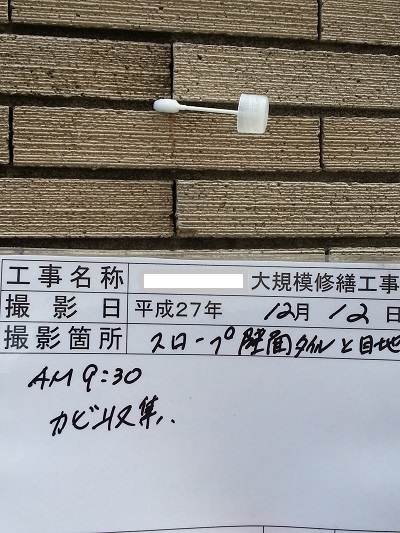 工事名称 大規模修繕工事
撮影日 平成27年 12月 12日
撮影箇所 スロープ壁面タイルと目地
AM 9:30
カビ収集..